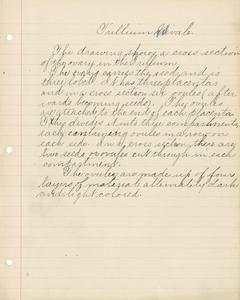 Trillium Nivale.
The drawing shows a cross-section
of the ovary in the trillium.
The ovary carries the seeds, and is
three lobed. It has three placentas
and in a cross section six ovules (after
wards becoming seeds). The ovules
are attached to the end of each placenta.
They divide it into three compartments
each containing ovules in a row on
each side. In a cross section, there are
two seeds or ovules cut through in each
compartment.
The ovules are made up of four
layers of material alternately dark
and light colored.